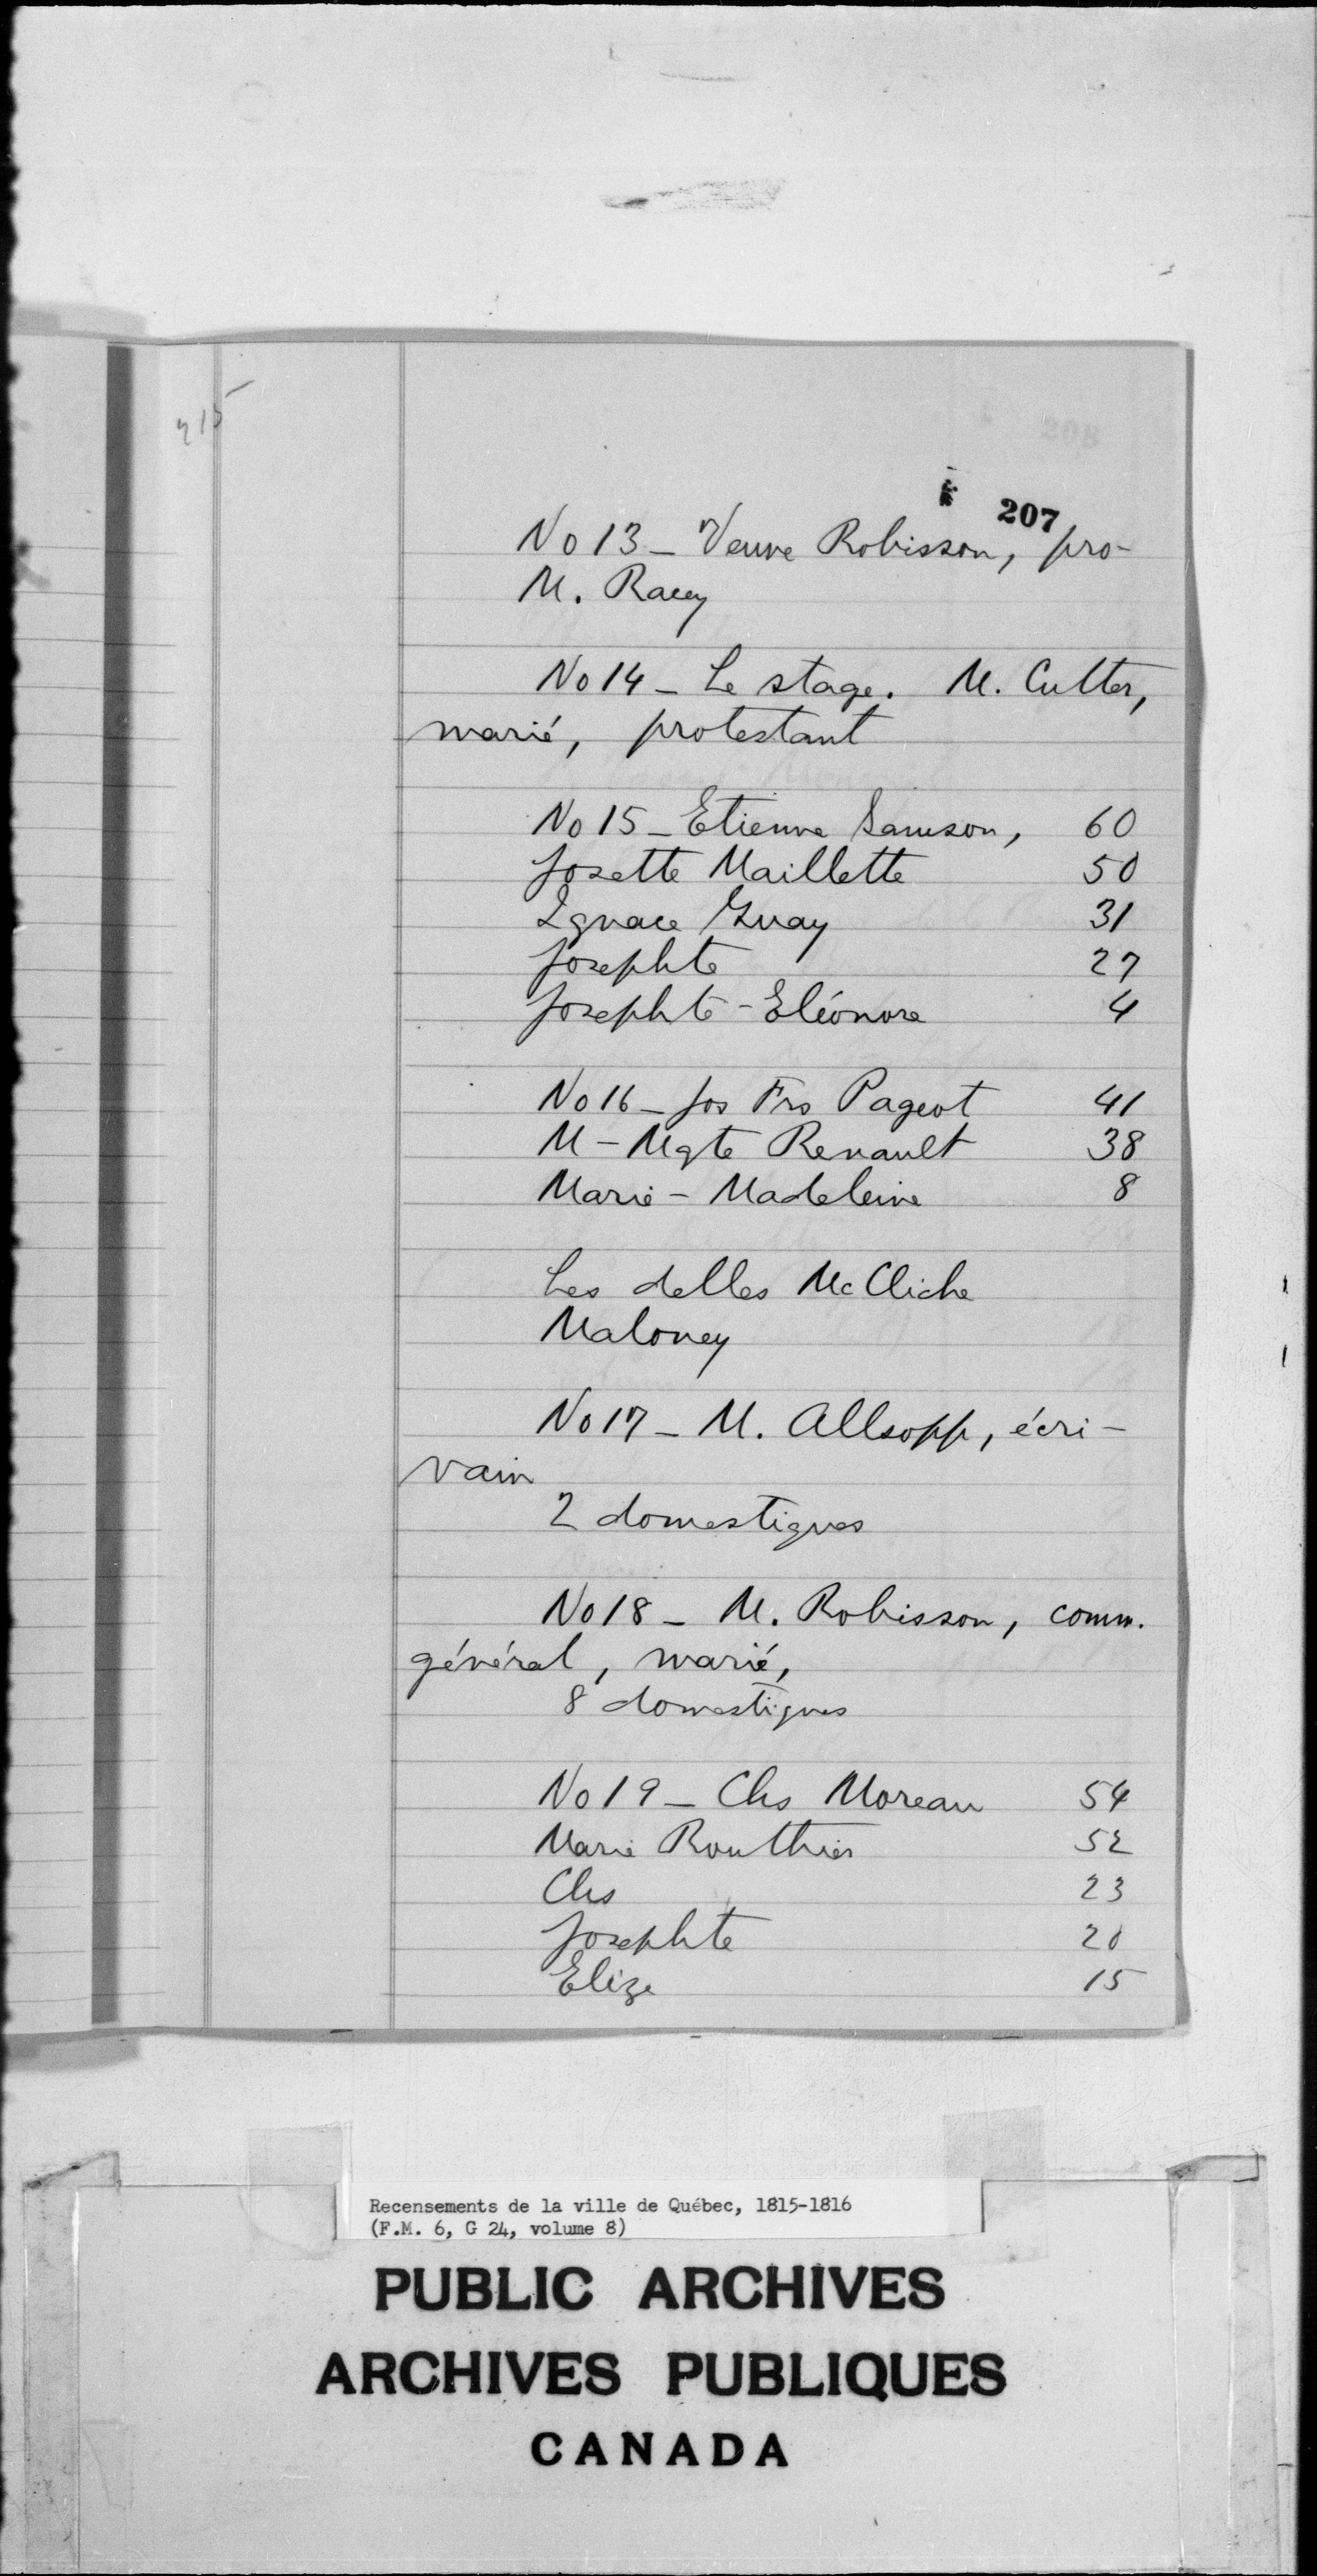 215
207
No 13 - Veuve Robisson, pro-
M. Racey
No 14 - Le stage. M. Cutter,
marié, protestant
No 15 - Etienne Samson, 60
Josette Maillette 50
Ignace Guay 31
Josephte 27
Josephte-Eléonore 4
No 16 - Jos Frs Pageot 41
M-Mgte Renault 38
Marie-Madeleine 8
Les delles McCliche
Maloney
No 17 - M. Allsopp, écri-
vain
2 domestiques
No 18 - M. Robisson, comm.
général, marié,
8 domestiques
No 19 - Chs Moreau 54
Marie Routhier 52
Chs 23
Josephte 20
Elize 15
Recensements de la ville de Québec, 1815-1816
(F.M. 6, G 24, volume 8)
PUBLIC ARCHIVES
ARCHIVES PUBLIQUES
CANADA